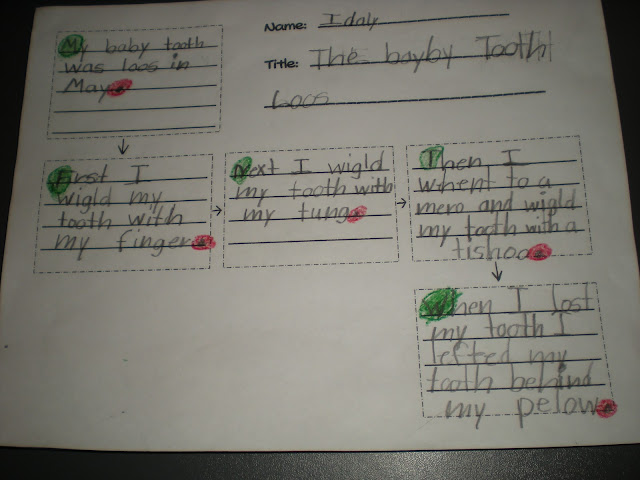 Name: Idaly
Title: The bayby Tooth
Loos
My baby tooth
was loos in
May.
First I
wigld my
tooth with
my finger.
Next I wigld
my tooth with
my tung.
Then I
whent to a
mero and wigld
my tooth with a
tishoo.
When I lost
my tooth I
lefted my
tooth behind
my pelow.